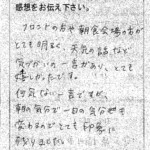 感想をお伝え下さい。
フロントの方や朝食会場の方が
とても明るく、天気の話など
気づかいの一言があり、とても
嬉しかったです。
何気ない一言ですが、
朝の気分で一日の気分も
変わるのでとても印象に
残りました。